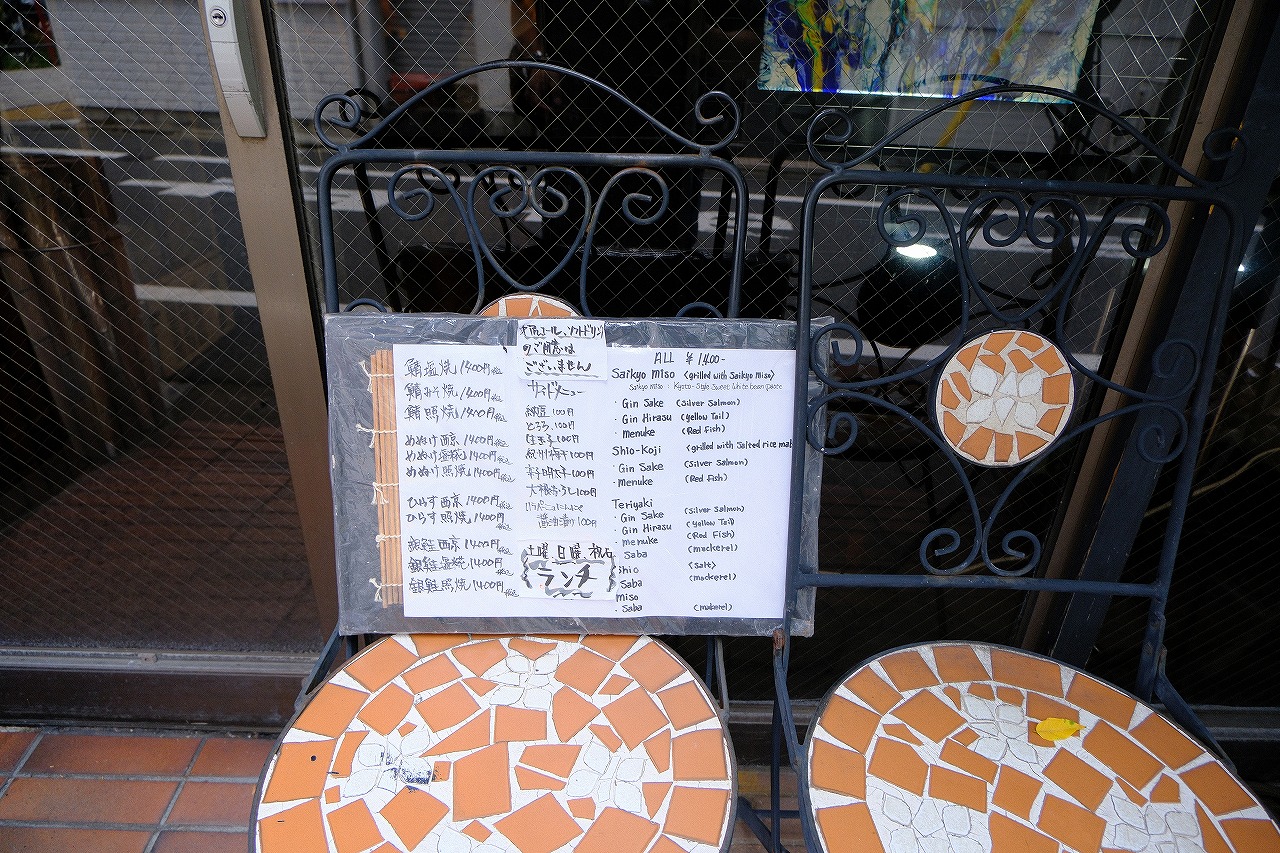 鯖塩焼 1400円税込
鯖みそ焼 1400円税込
鯖照焼 1400円税込
めぬけ西京 1400円税込
めぬけ塩糀 1400円税込
めぬけ照焼 1400円税込
ひらす西京 1400円税込
ひらす照焼 1400円
銀鮭西京 1400円税込
銀鮭塩糀 1400円税込
銀鮭照焼 1400円税込
アルコール、ソフトドリンク
のご用意は
ございません
サイドメニュー
納豆 100円
とろろ 100円
生玉子 100円
紀州梅干 100円
辛子明太子 100円
大根おろし 100円
醤油漬け 100円
土曜、日曜、祝日
ランチ
ALL ¥1400-
Saikyo Miso (grilled with Saikyo Miso)
Saikyo Miso : Kyoto-Style Sweet White bean paste
・Gin Sake (Silver Salmon)
・Gin Hirasu (Yellow Tail)
・Menuke (Red Fish)
Shio-Koji (grilled with Salted rice mal
・Gin Sake (Silver Salmon)
・Menuke (Red Fish)
Teriyaki
・Gin Sake (Silver Salmon)
・Gin Hirasu (Yellow Tail)
・menuke (Red Fish)
Saba (mackerel)
Shio (Salt)
Saba (mackerel)
miso
・Saba (makerel)